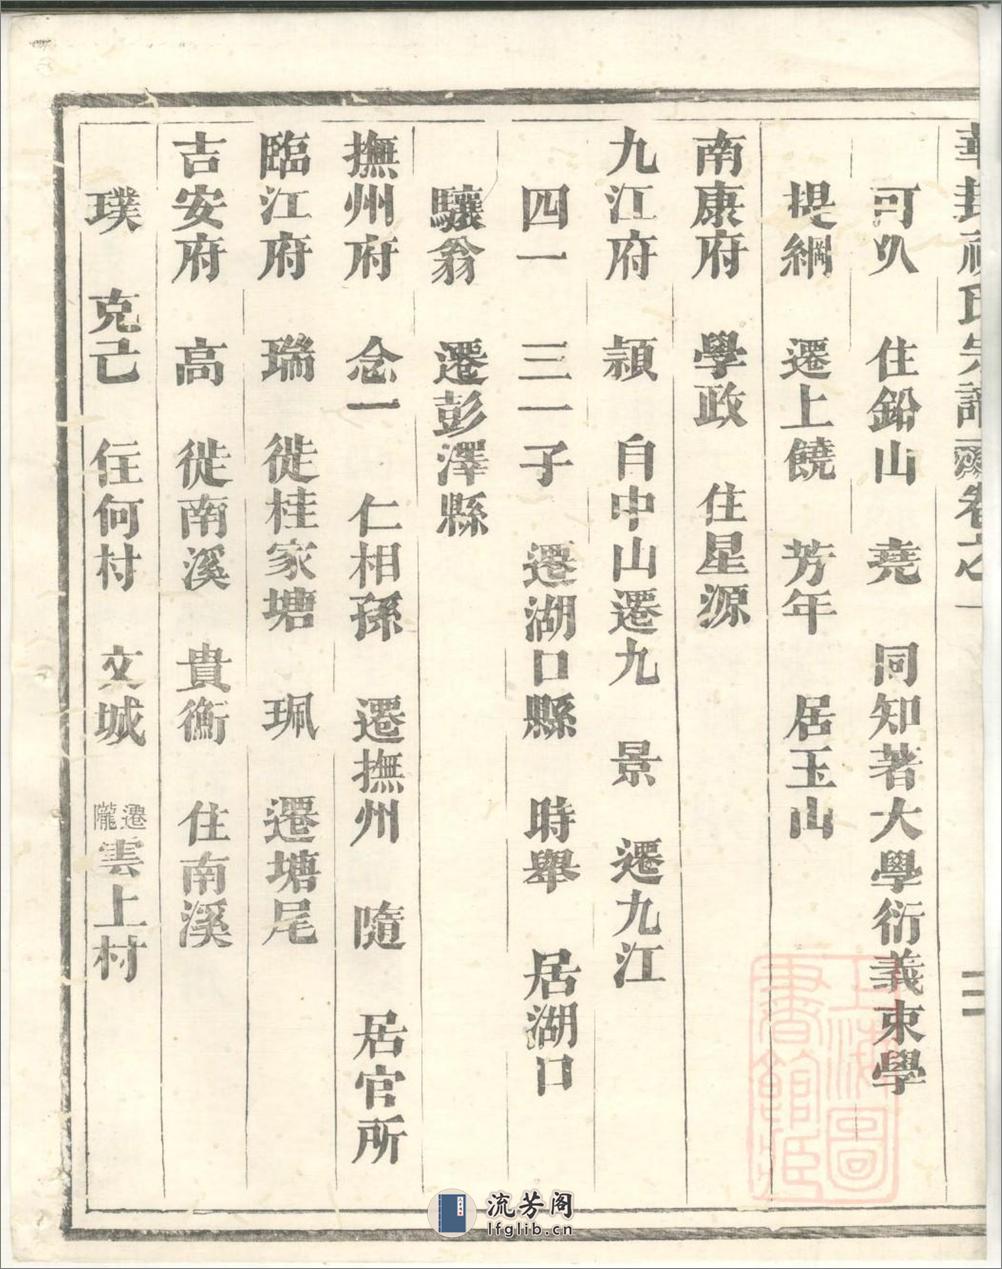 氏宗譜 卷之一
可久 住鉛山 堯 同知著大學衍義東學
提綱 遷上饒 芳年 居玉山
南康府 學政 住星源
九江府 潁 自中山遷九 景 遷九江
四一 三一子 遷湖口縣 時舉 居湖口
驤翁 遷彭澤縣
撫州府 念一 仁相孫 遷撫州 隨 居官所
臨江府 瑞 徙桂家塘 珮 遷塘尾
吉安府 高 徙南溪 貴衡 住南溪
璞 克己 住何村 文城 遷隴雲上村
上海圖書館藏
流芳阁
lfglib.cn